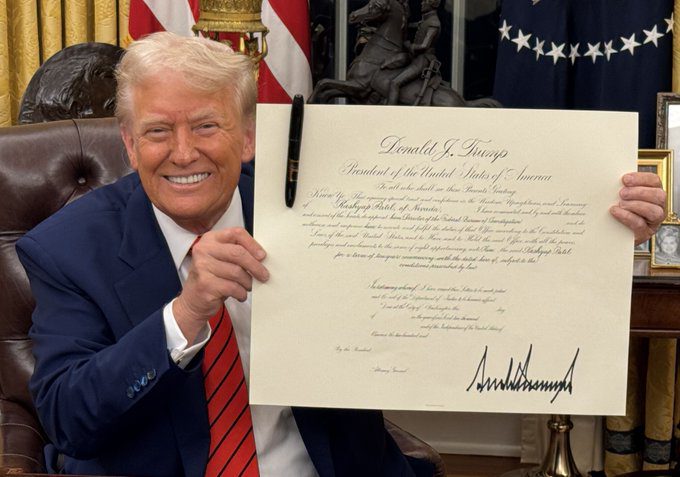 Donald J. Trump
President of the United States of America
To all who shall see these Presents, Greeting:
Know Ye; That reposing special trust and confidence in the Wisdom, Uprightness, and Learning
of Kashyap Patel, of Nevada, I have nominated, and, by and with the advice
and consent of the Senate, do appoint him Director of the Federal Bureau of Investigation and do
authorize and empower him to execute and fulfil the duties of that Office according to the Constitution and
Laws of the said United States and to Have and to Hold the said Office, with all the powers,
privileges and emoluments to the same of right appertaining, unto Him, the said Kashyap Patel
for a term of ten years commencing with the dated here of, subject to the
conditions prescribed by law.
In testimony whereof, I have caused these Letters to be made patent
and the seal of the Department of Justice to be hereunto affixed.
Done at the City of Washington this day
of in the year of our Lord two thousand
and of the Independence of the United States
of America the two hundred and
By the President:
Attorney General